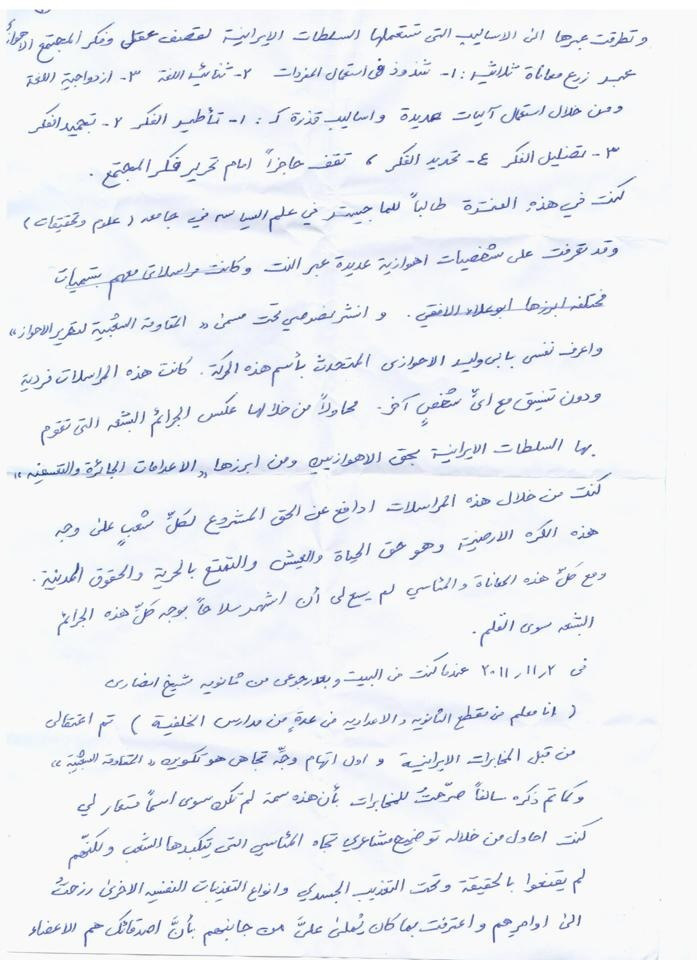 و تطرقت عبرها الى الاساليب التى تستعملها السلطات الإيرانية لقصف عقلى وفكر المجتمع الاحوازى
عبر زرع معاناة ثلاثية: ١- شذوذ فى استعمال المفردات ٢- ثنائية اللغة ٣- ازدواجية اللغة
ومن خلال استعمال آليات عديدة و اساليب قذرة كـ: ١- تأطير الفكر ٢- تجميد الفكر
٣- تضليل الفكر ٤- تحديد الفكر، تقف حاجزاً امام تحرير فكر المجتمع.
كنت في هذه الفترة طالباً للماجيستر في علم السياسه في جامعه (علوم وتحقيقات)
وقد تعرفت على شخصيات احوازية عديدة عبر النت وكانت مراسلاتى معهم بتسميات
مختلفه ابرزها ابوعلاء الافقي. و انشر نصوصي تحت مسمى «المقاومة الشعبية لتحرير الاحواز»
واعرف نفسى بابى وليد الاحوازى المتحدث بأسم هذه الحركة. كانت هذه المراسلات فردية
ودون تنسيق مع اىِّ شخصٍ آخر. محاولاً من خلالها عكس الجرائم البشعه التى تقوم
بها السلطات الايرانية بحق الاهوازيين ومن ابرزها «الاعدامات الجائرة والتعسفيه»
كنت من خلال هذه المراسلات ادافع عن الحق المشروع لكلِّ شعبٍ على وجه
هذه الكره الارضية وهو حق الحياة والعيش والتمتع بالحرية والحقوق المدنية.
ومع كلِّ هذه المعاناة والمئاسي لم يسع لى أن اشهر سلاحاً بوجه كلِّ هذه الجرائم
البشعه سوى القلم.
فى ٢٠١١،١١،٢ عندما كنت فى البيت و بعد رجوعى من ثانويه شيخ انصارى
(انا معلم فى مقطع الثانويه والاعداديه فى عدةٍ من مدارس الخلفية) تم اعتقالى
من قبل المخابرات الايرانية و اول اتهام وجِّه تجاهى هو تكوين «المقاومة الشعبية»
وكما تم ذكره سالفاً صرّحتُ للمخابرات بأن هذه سمة لم تكن سوى اسماً مستعار لي
كنت احاول من خلاله توضيح مشاعري تجاه المئاسي التى يتكبدها الشعب ولكنّهم
لم يقتنعوا بالحقيقة وتحت التعذيب الجسدي وانواع التعذيبات النفسيه الاخرىٰ رزحتُ
الىٰ اوامرهم و اعترفت بما كان يُملىٰ علىَّ من جانبهم بأنَّ اصدقائك هم الاعضاء